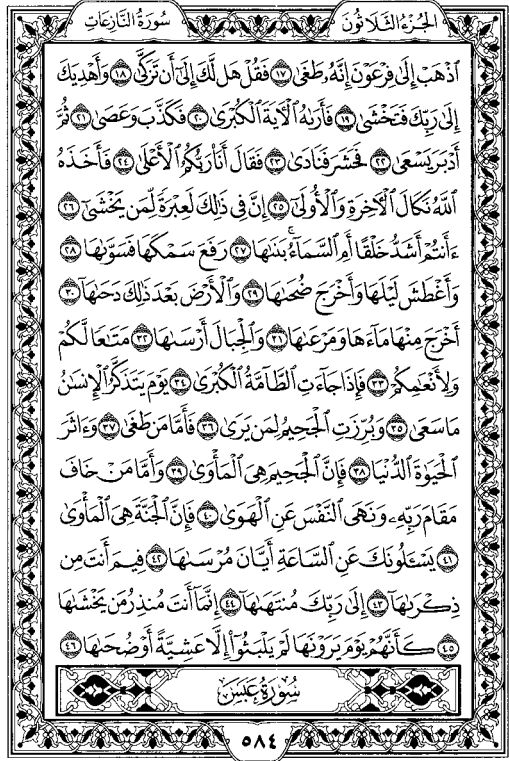 سُورَةُ النَّازِعَاتِ
الجُزْءُ الثَّلَاثُونَ
ٱذْهَبْ إِلَىٰ فِرْعَوْنَ إِنَّهُۥ طَغَىٰ ١٧ فَقُلْ هَل لَّكَ إِلَىٰٓ أَن تَزَكَّىٰ ١٨ وَأَهْدِيَكَ
إِلَىٰ رَبِّكَ فَتَخْشَىٰ ١٩ فَأَرَىٰهُ ٱلْـَٔايَةَ ٱلْكُبْرَىٰ ٢٠ فَكَذَّبَ وَعَصَىٰ ٢١ ثُمَّ
أَدْبَرَ يَسْعَىٰ ٢٢ فَحَشَرَ فَنَادَىٰ ٢٣ فَقَالَ أَنَا۠ رَبُّكُمُ ٱلْأَعْلَىٰ ٢٤ فَأَخَذَهُ
ٱللَّهُ نَكَالَ ٱلْـَٔاخِرَةِ وَٱلْأُولَىٰٓ ٢٥ إِنَّ فِى ذَٰلِكَ لَعِبْرَةً لِّمَن يَخْشَىٰٓ ٢٦
ءَأَنتُمْ أَشَدُّ خَلْقًا أَمِ ٱلسَّمَآءُ ۚ بَنَىٰهَا ٢٧ رَفَعَ سَمْكَهَا فَسَوَّىٰهَا ٢٨
وَأَغْطَشَ لَيْلَهَا وَأَخْرَجَ ضُحَىٰهَا ٢٩ وَٱلْأَرْضَ بَعْدَ ذَٰلِكَ دَحَىٰهَآ ٣٠
أَخْرَجَ مِنْهَا مَآءَهَا وَمَرْعَىٰهَا ٣١ وَٱلْجِبَالَ أَرْسَىٰهَا ٣٢ مَتَٰعًا لَّكُمْ
وَلِأَنْعَٰمِكُمْ ٣٣ فَإِذَا جَآءَتِ ٱلطَّآمَّةُ ٱلْكُبْرَىٰ ٣٤ يَوْمَ يَتَذَكَّرُ ٱلْإِنسَٰنُ
مَا سَعَىٰ ٣٥ وَبُرِّزَتِ ٱلْجَحِيمُ لِمَن يَرَىٰ ٣٦ فَأَمَّا مَن طَغَىٰ ٣٧ وَءَاثَرَ
ٱلْحَيَوٰةَ ٱلدُّنْيَا ٣٨ فَإِنَّ ٱلْجَحِيمَ هِىَ ٱلْمَأْوَىٰ ٣٩ وَأَمَّا مَنْ خَافَ
مَقَامَ رَبِّهِۦ وَنَهَى ٱلنَّفْسَ عَنِ ٱلْهَوَىٰ ٤٠ فَإِنَّ ٱلْجَنَّةَ هِىَ ٱلْمَأْوَىٰ
٤١ يَسْـَٔلُونَكَ عَنِ ٱلسَّاعَةِ أَيَّانَ مُرْسَىٰهَا ٤٢ فِيمَ أَنتَ مِن
ذِكْرَىٰهَآ ٤٣ إِلَىٰ رَبِّكَ مُنتَهَىٰهَآ ٤٤ إِنَّمَآ أَنتَ مُنذِرُ مَن يَخْشَىٰهَا
٤٥ كَأَنَّهُمْ يَوْمَ يَرَوْنَهَا لَمْ يَلْبَثُوٓا۟ إِلَّا عَشِيَّةً أَوْ ضُحَىٰهَا ٤٦
سُورَةُ عَبَسَ
٥٨٤